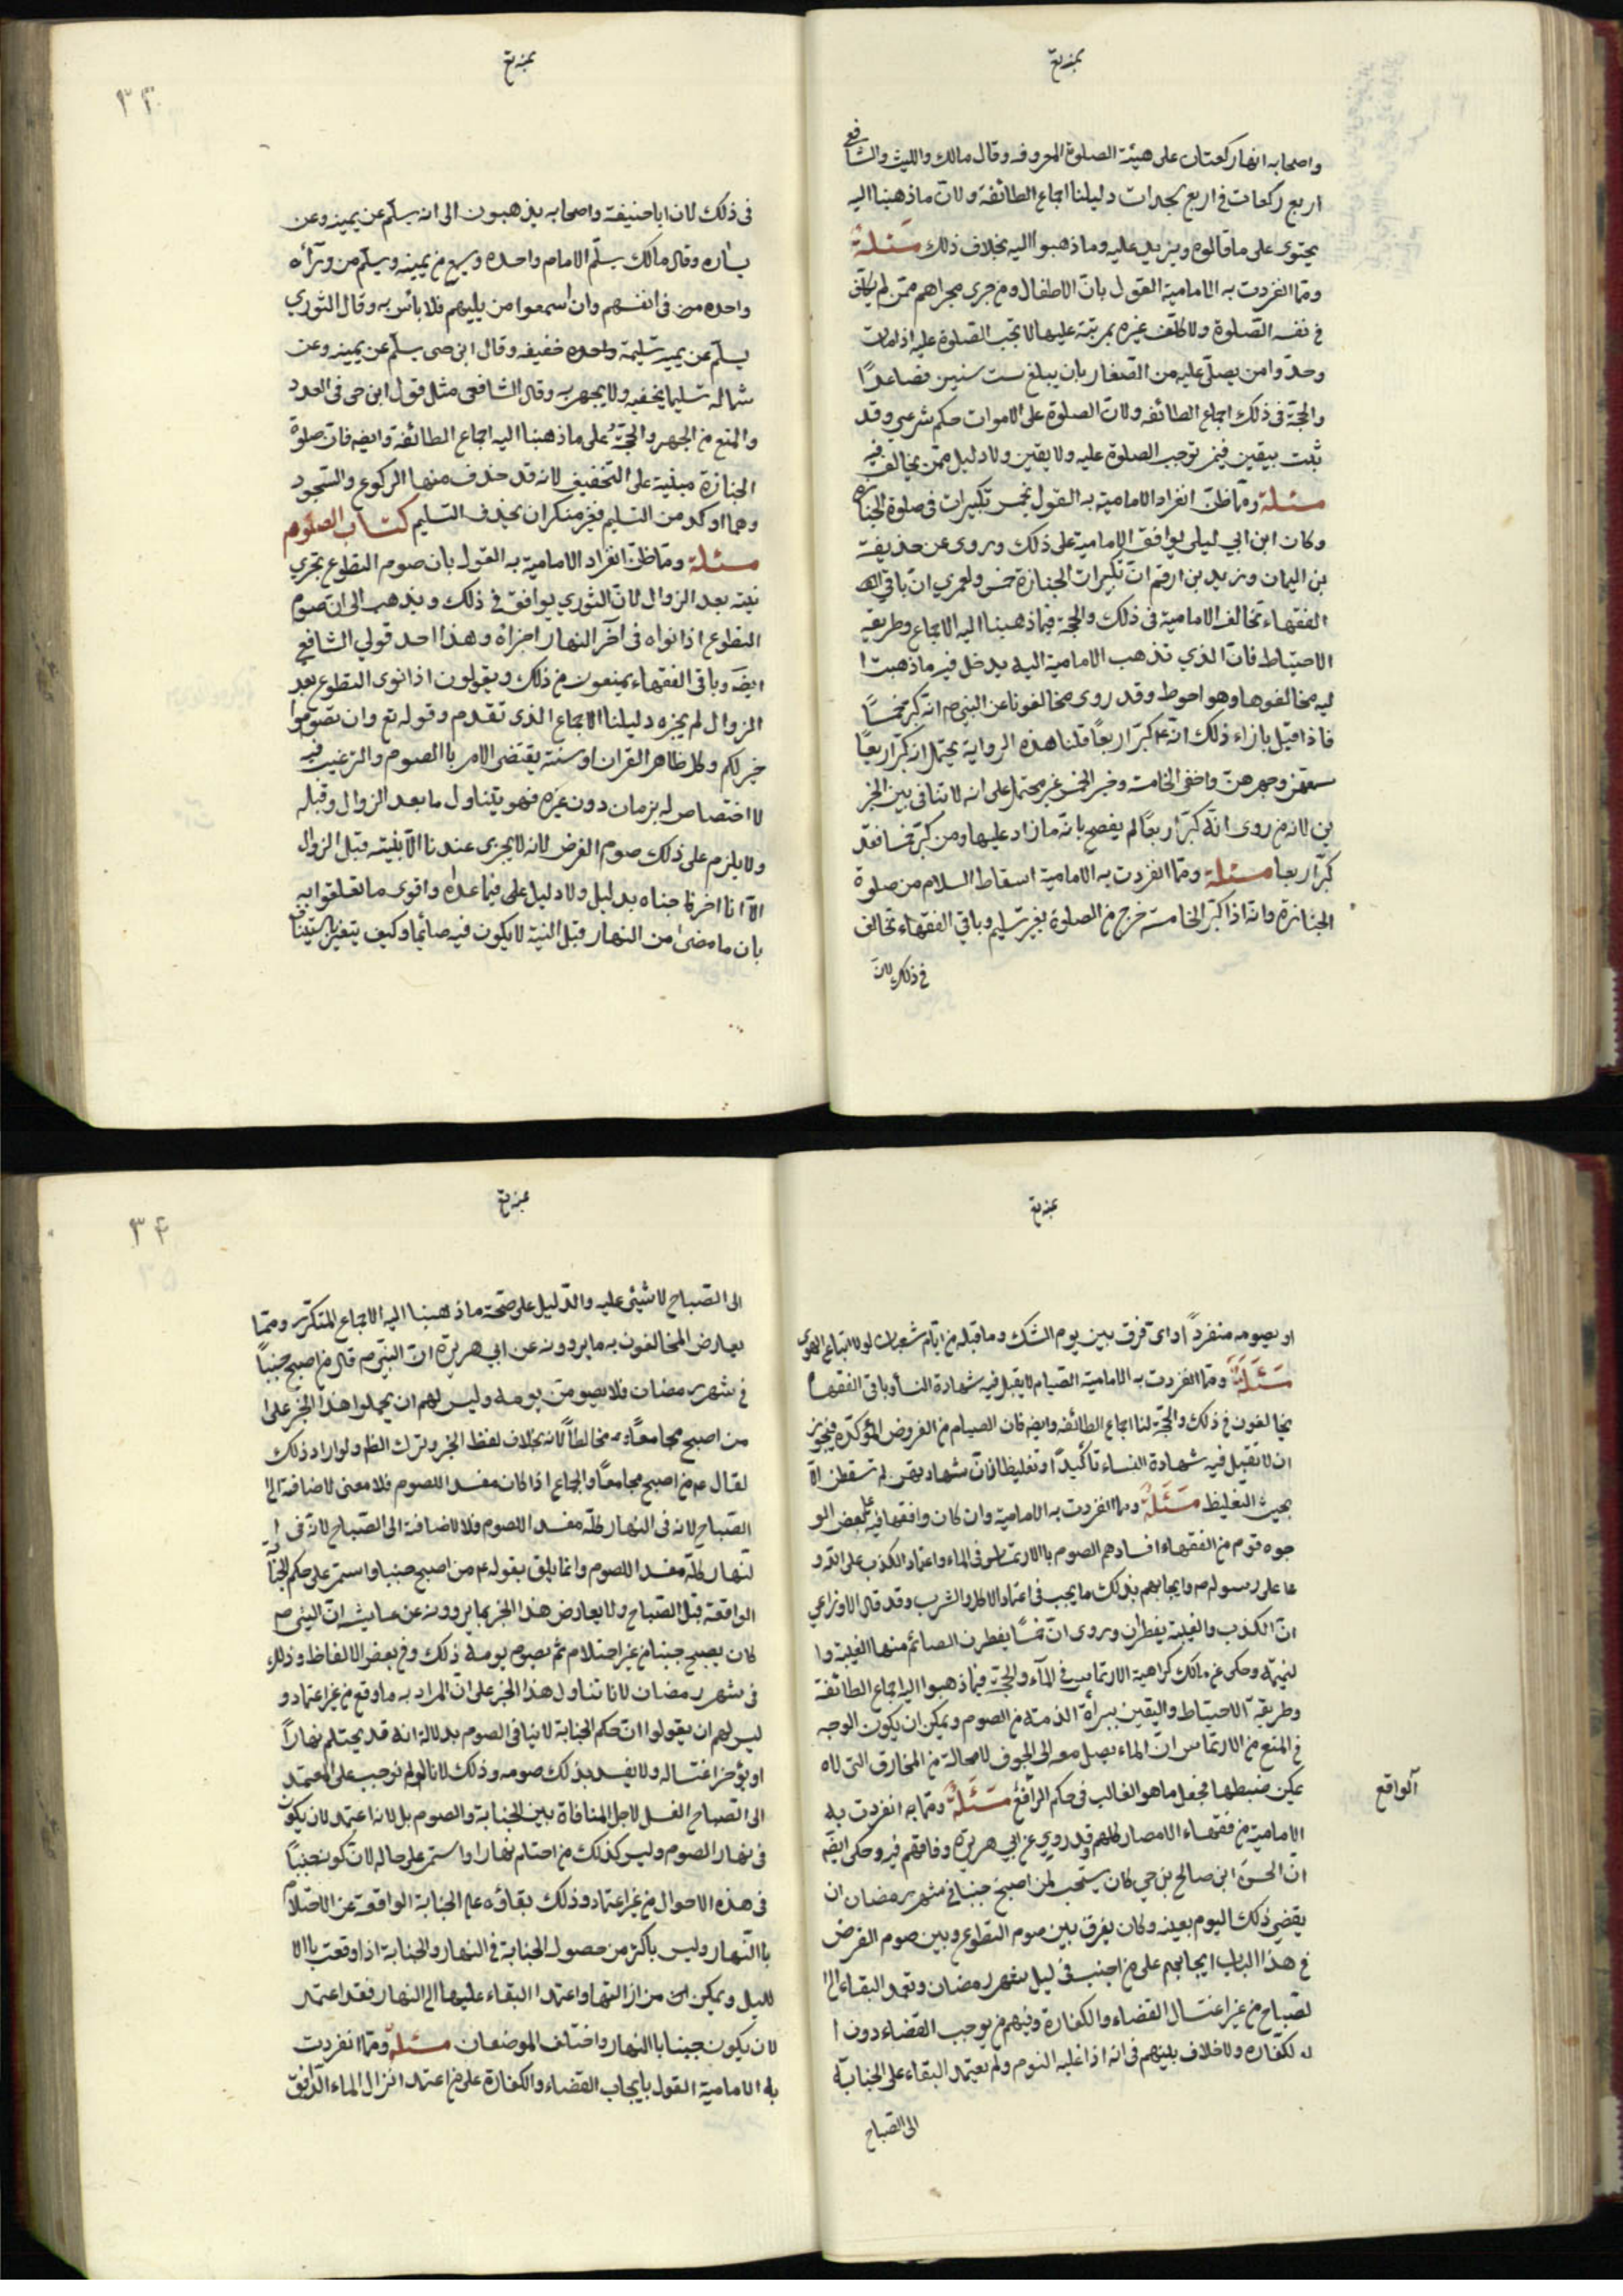 واصحابه انها ركعتان على هيئة الصلوة المعروفه وقال مالك والليث والشافعي
اربع ركعات في اربع سجدات دليلنا اجماع الطائفة ولان ما ذهبنا اليه
يحتوى على ما قالوه ويزيد عليه وما ذهبوا اليه بخلاف ذلك مسئلة
ومما انفردت به الامامية القول بان الاطفال ومن جرى مجراهم ممن لم يكلف
في نفسه الصلوة ولا كلف غيره تمرينه عليها لا تجب الصلوة عليه اذا مات
وحدوا من يصلى عليه من الصغار بان يبلغ ست سنين فصاعدًا
والحجة في ذلك اجماع الطائفه ولان الصلوة على الاموات حكم شرعي وقد
ثبت بيقين فيمن توجب الصلوة عليه ولا يقين ولا دليل ممن يخالف فيه
مسئلة ومما ظن انفراد الامامية به القول بخمس تكبيرات في صلوة الجنازه
وكان ابن ابي ليلى يوافق الامامية على ذلك وروى عن حذيفة
بن اليمان وزيد بن ارقم ان تكبيرات الجنازة خمس ولعمري ان باقي
الفقهاء تخالف الامامية في ذلك والحجة فيما ذهبنا اليه الاجماع وطريقة
الاحتياط فان الذي تذهب الامامية اليه يدخل فيه ما ذهبت ا
ليه مخالفوها وهو احوط وقد روى مخالفونا عن النبي ص انه كبر خمسًا
فاذا قيل بازاء ذلك انه ع كبر اربعًا قلنا هذه الرواية يحتمل انه كبر اربعًا
سمعهن وجهر بهن واخفى الخامسة وخبر الخمس غير محتمل على انه لا تنافي بين الخبر
ين لان من روى انه كبر اربعًا لم يفصح بانه ما زاد عليها ومن كبر خمسا فقد
كبر اربعا مسئلة ومما انفردت به الامامية اسقاط السلام من صلوة
الجنازة وانه اذا كبر الخامسة خرج من الصلوة بغير تسليم وباقي الفقهاء تخالف
في ذلك لان
٣٣
في ذلك لان ابا حنيفة واصحابه يذهبون الى انه يسلم عن يمينه وعن
يساره وقال مالك يسلم الامام واحده ويسمع من يمينه ويسلم من ورائه
واحده في انفسهم وان اسمعوا من يليهم فلا بأس به وقال الثوري
يسلم عن يمينه تسليمة واحده خفيفه وقال ابن حى يسلم عن يمينه وعن
شماله تسليما يخفيه ولا يجهر به وقال الشافعي مثل قول ابن حى في العدد
والمنع من الجهر والحجة على ما ذهبنا اليه اجماع الطائفة وايضه فان صلوة
الجنازة مبنية على التخفيف لانه قد حذف منها الركوع والسجود
وهما اوكد من التسليم فغير منكر ان يحذف التسليم كتاب الصوم
مسئلة ومما ظن انفراد الامامية به القول بان صوم التطوع يجزي
نيته بعد الزوال لان الثوري يوافق في ذلك ويذهب الى ان صوم
التطوع اذا نواه في آخر النهار اجزاه وهذا احد قولي الشافعي
ايضه وباقي الفقهاء يمنعون من ذلك ويقولون اذا نوى التطوع بعد
الزوال لم يجزه دليلنا الاجماع الذى تقدم وقوله تع وان تصوموا
خير لكم وكل ظاهر القران او سنة يقتضى الامر بالصوم والترغيب فيه
لا اختصاص له بزمان دون غيره فهو يتناول ما بعد الزوال وقبله
ولا يلزم على ذلك صوم الفرض لانه لا يجزى عندنا الا بنيته قبل الزوال
لانا اخرجناه بدليل ولا دليل على فيما عداه واقوى ما تعلقوا به
بان ما مضى من النهار قبل النية لا يكون فيه صائما وكيف يتغير
او يصومه منفردًا واى فرق بين يوم الشك وما قبله من ايام شعبان لولا اتباع الهوى
مسئلة ومما انفردت به الامامية الصيام لا يقبل فيه شهادة النسا وباقي الفقهاء
يخالفون في ذلك والحجة لنا اجماع الطائفه وايضه فان الصيام من الفروض المؤكده فيجوز
ان لا تقبل فيه شهادة النساء تأكيدًا وتغليظا فان شهادتهن لم تسقط الا
بحيث التغليظ مسئلة ومما انفردت به الامامية وان كان وافقها فيه على بعض الو
جوه قوم من الفقهاء افسادهم الصوم بالارتماس في الماء واعتماد الكذب على الله و
على رسوله ص وايجابهم بذلك ما يجب في اعتماد الاكل والشرب وقد قال الاوزاعي
ان الكذب والغيبة يفطران وروى ان خمسًا يفطرن الصائم منها الغيبة وا
لنميمة وحكى عن مالك كراهية الارتماس في الماء والحجة فيما ذهبوا اليه اجماع الطائفة
وطريقة الاحتياط واليقين ببرأة الذمة من الصوم ويمكن ان يكون الوجه
في المنع من الارتماس ان الماء يصل معه الى الجوف لا محالة من المخارق التى لا
يمكن ضبطها فجعل ما هو الغالب في حكم الرافع مسئلة ومما به انفردت به
الواقع
الامامية من فقهاء الامصار كلهم وقد روى عن ابي هريرة وفاقهم فيه وحكى ايضه
ان الحسن ابن صالح بن حي كان يستحب لمن اصبح جنبا في شهر رمضان ان
يقضي ذلك اليوم بعينه وكان يفرق بين صوم التطوع وبين صوم الفرض
في هذا الباب ايجابهم على من اجنب في ليل شهر رمضان وتعمد البقاء الى ا
لصباح من غير اغتسال القضاء والكفارة وفيهم من يوجب القضاء دون ا
لكفاره ولا خلاف بينهم في انه اذا غلبه النوم ولم يعتمد البقاء على الجنابة
الى الصباح
٣٤
الى الصباح لا شيئ عليه والدليل على صحة ما ذهبنا اليه الاجماع المتكرر ومما
يعارض المخالفون به ما يروونه عن ابي هريرة ان النبي ص قال من اصبح جنبًا
في شهر رمضان فلا يصومن يومه وليس لهم ان يحملوا هذا الخبر على ا
من اصبح مجامعًا مخالطًا لانه بخلاف لفظ الخبر وترك الظم ولو اراد ذلك
لقال ع من اصبح مجامعًا والجماع اذا كان مفسد اللصوم فلا معنى لاضافة الى
الصباح لانه في النهار كله مفسد اللصوم فلا لاضافة الى الصباح لانه في ا
لنهار كله مفسد اللصوم وانما يليق بقوله ع من اصبح جنبا واستمر على حكم الجنا
الواقعة قبل الصباح ولا يعارض هذا الخبر بما يروونه عن عايشه ان النبي ص
كان يصبح جنبا من غير احتلام ثم يصوم يومه ذلك وفي بعض الالفاظ وذلك
في شهر رمضان لانا نتاول هذا الخبر على ان المراد به ما وقع من غير اعتماد و
ليس لهم ان يقولوا ان حكم الجنابة لا ينافي الصوم بدلالة انه قد يحتلم نهارًا
او يؤخر اغتساله ولا يفسد بذلك صومه وذلك لانا لم نوجب على المعتمد
الى الصباح الغسل لاجل المنافاة بين الجنابة والصوم بل لانه اعتمد لان يكون
في نهار الصوم وليس كذلك من احتلم نهارا واستمر على حاله لان كونه جنبًا
في هذه الاحوال من غير اعتماد وذلك بقاؤه على الجنابة الواقعة عن الاحتلام
بالنهار وليس باكثر من حصول الجنابة في النهار والجنابة اذا وقعت بالا
لليل ويمكن من ازالتها واعتمد البقاء عليها الى النهار فقد اعتمد
لان يكون جنبا بالنهار واختلف الموضعان مسئلة ومما انفردت
به الامامية القول بايجاب القضاء والكفارة على من اعتمد انزال الماء الدافق